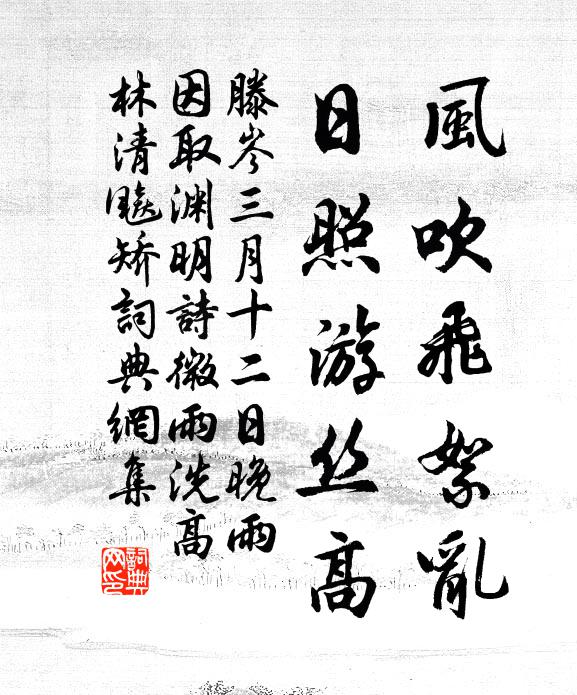 風吹飛絮亂
日照游丝高
滕岑三月十二日晚雨
因取渊明詩微雨洗高
林清飈矯詞典網集
詞典网印